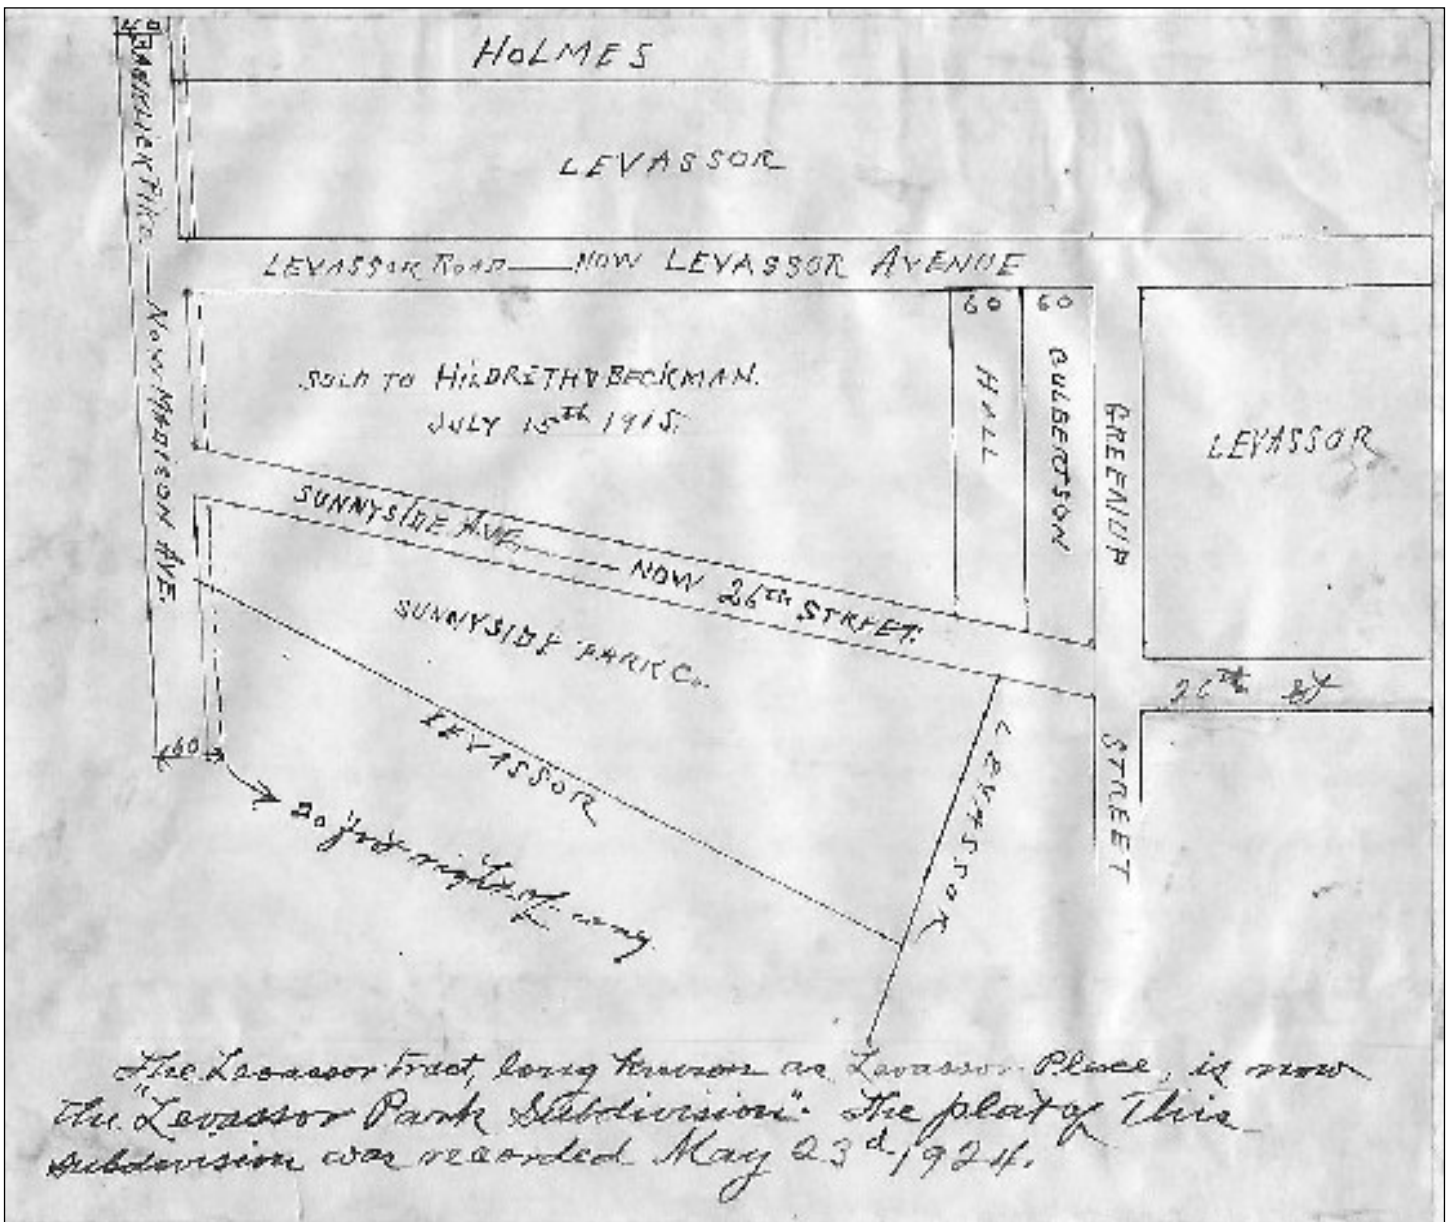 40
HOLMES
BANKLICK PIKE — NOW MADISON AVE.
LEVASSOR
LEVASSOR ROAD — NOW LEVASSOR AVENUE
60
60
SOLD TO HILDRETH & BECKMAN.
JULY 15th 1915.
HALL
CULBERTSON
GREENUP STREET
LEVASSOR
SUNNYSIDE AVE. — NOW 26TH STREET.
SUNNYSIDE PARK Co.
26th St
LEVASSOR
LEVASSOR
60
20 foot right of way
The Levassor Tract, long known as Levassor Place, is now
the "Levassor Park Subdivision". The plat of This
subdivision was recorded May 23d, 1924.